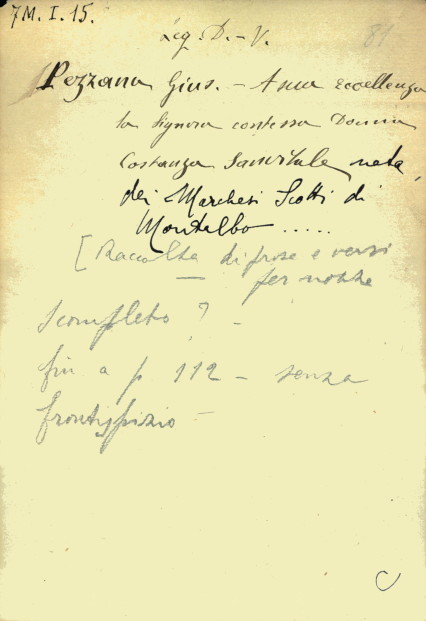 7M. I. 15.
Leg. D. - V.
81
Pezzana Gius. - A sua eccellenza
la Signora contessa Donna
Costanza Sanvitale nata
dei Marchesi Scotti di
Montalbo .....
[Raccolta di prose e versi
per nozze
Scompleto ? -
fin a p 112 - senza
frontispizio -
C